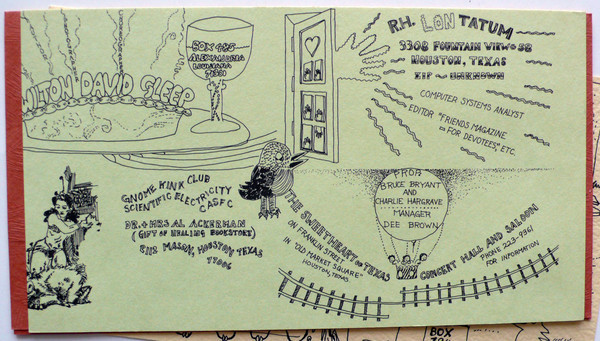 MILTON DAVID GLEEP
BOX 485
ALEXANDRIA
LOUISIANA
71301
R.H. LON TATUM
9308 FOUNTAIN VIEW 58
HOUSTON, TEXAS
ZIP - UNKNOWN
COMPUTER SYSTEMS ANALYST
EDITOR "FRIENDS MAGAZINE
FOR DEVOTEES", ETC.
GNOME KINK CLUB
SCIENTIFIC ELECTRICITY
CASFC
DR. + MRS AL ACKERMAN
(GIFT OF HEALING BOOKSTORE)
8112 MASON, HOUSTON TEXAS
77006
THE SWEETHEART OF TEXAS
ON FRANKLIN STREET
IN "OLD MARKET SQUARE"
HOUSTON, TEXAS
BRUCE BRYANT
AND
CHARLIE HARGRAVE
MANAGER
DEE BROWN
CONCERT HALL AND SALOON
PHONE 223-9361
FOR INFORMATION
BOX